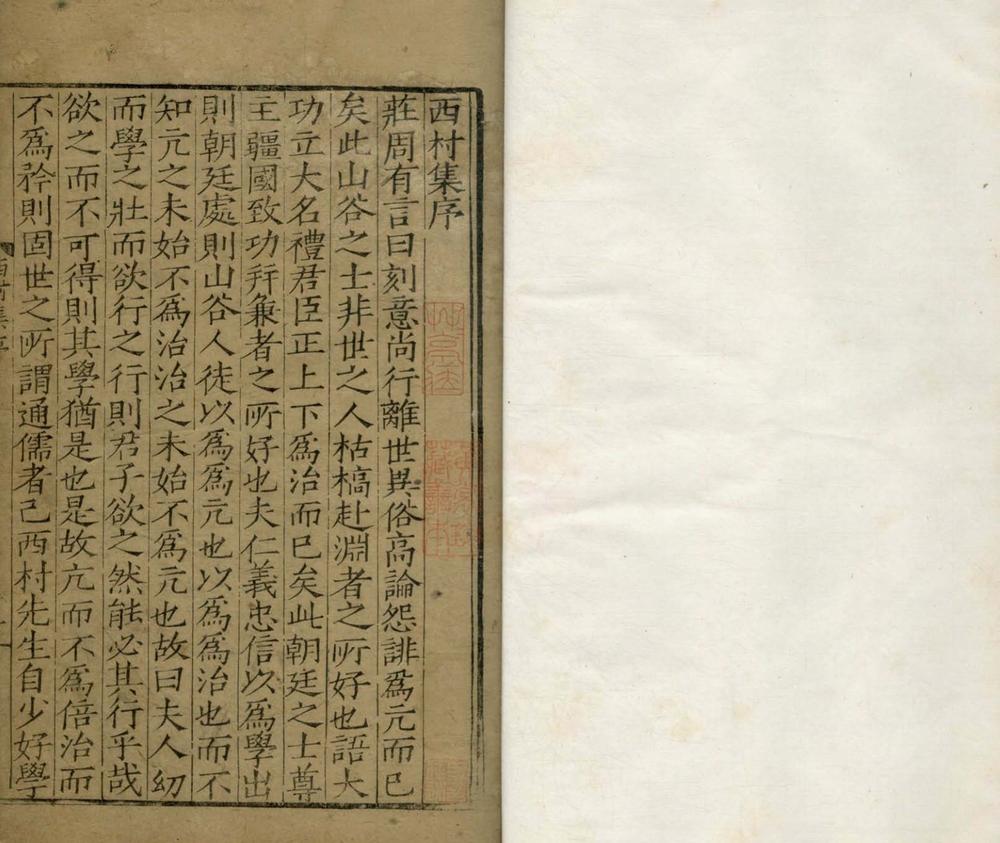 西村集序
莊周有言曰刻意尚行離世異俗高論怨誹爲亢而已
矣此山谷之士非世之人枯槁赴淵者之所好也語大
功立大名禮君臣正上下爲治而已矣此朝廷之士尊
主彊國致功并兼者之所好也夫仁義忠信以爲學出
則朝廷處則山谷人徒以爲爲亢也以爲爲治也而不
知亢之未始不爲治治之未始不爲亢也故曰夫人幼
而學之壯而欲行之行則君子欲之然能必其行乎哉
欲之而不可得則其學猶是也是故亢而不爲倍治而
不爲矜則固世之所謂通儒者已西村先生自少好學
西村集序